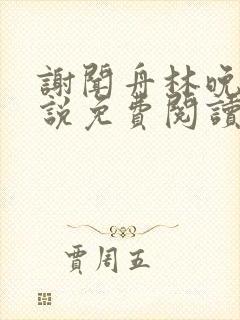 謝聞舟林晚
説免費閱讀
賈周五